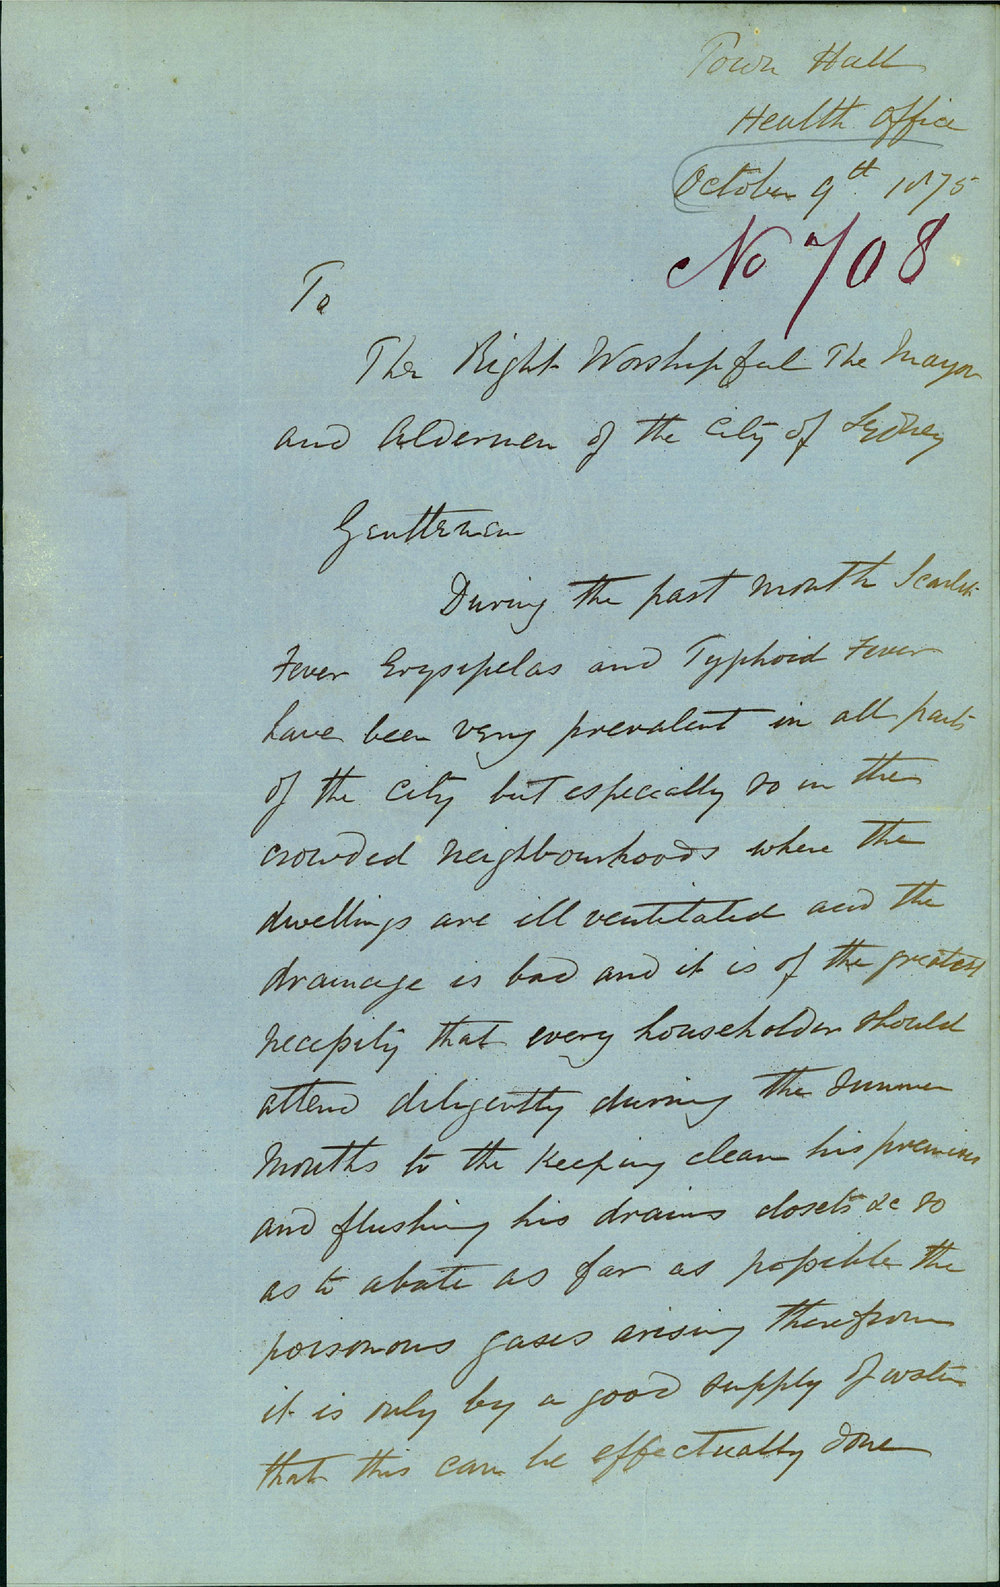 Town Hall
Health Office
October 9th 1875
No 708
To
The Right Worshipful The Mayor
and Aldermen of the City of Sydney
Gentlemen
During the past month Scarlet
Fever Erysipelas and Typhoid Fever
have been very prevalent in all parts
of the City but especially so in the
crowded neighbourhoods where the
dwellings are ill ventilated and the
drainage is bad and it is of the greatest
necessity that every householder should
attend diligently during the summer
months to the keeping clean his premises
and flushing his drains closets &c so
as to abate as far as possible the
poisonous gases arising therefrom
it is only by a good supply of water
that this can be effectually done